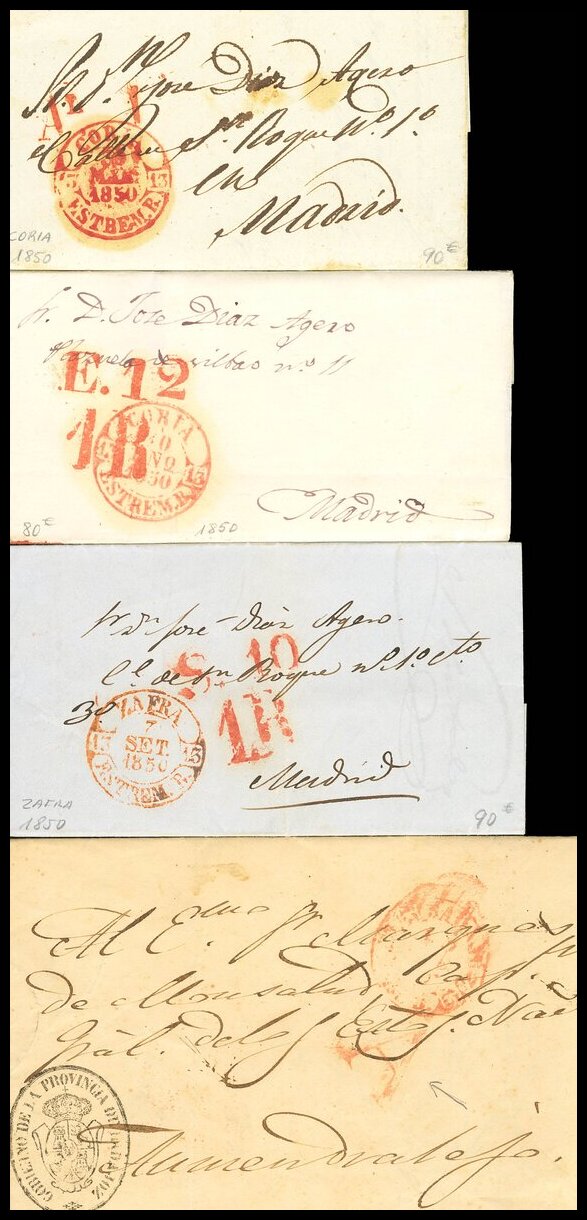 Sr. Dn José Diaz Agero
Calle Sn Roque No. 1o
en
Madrid.
CORIA
1850
13 13
ESTREM.R.
CORIA
1850
90€
Sr. D. Jose Diaz Agero
Plazuela de vilbao no. 11
E. 12
1R
CORIA
10
13
ESTREM.R.
Madrid
80€
1850
Sr Dn José Diaz Agero.
Cl. de Sn Roque no. 1o cto
3o
S. 10
1R
ZAFRA
7
SET.
1850
13 13
ESTREM.R.
Madrid
ZAFRA
1850
90€
Al E.mo Sr Marques
de Monsalud Cap.
Gral. de los Ejtos Nac
GOBIERNO DE LA PROVINCIA DE BADAJOZ
Almendralejo.